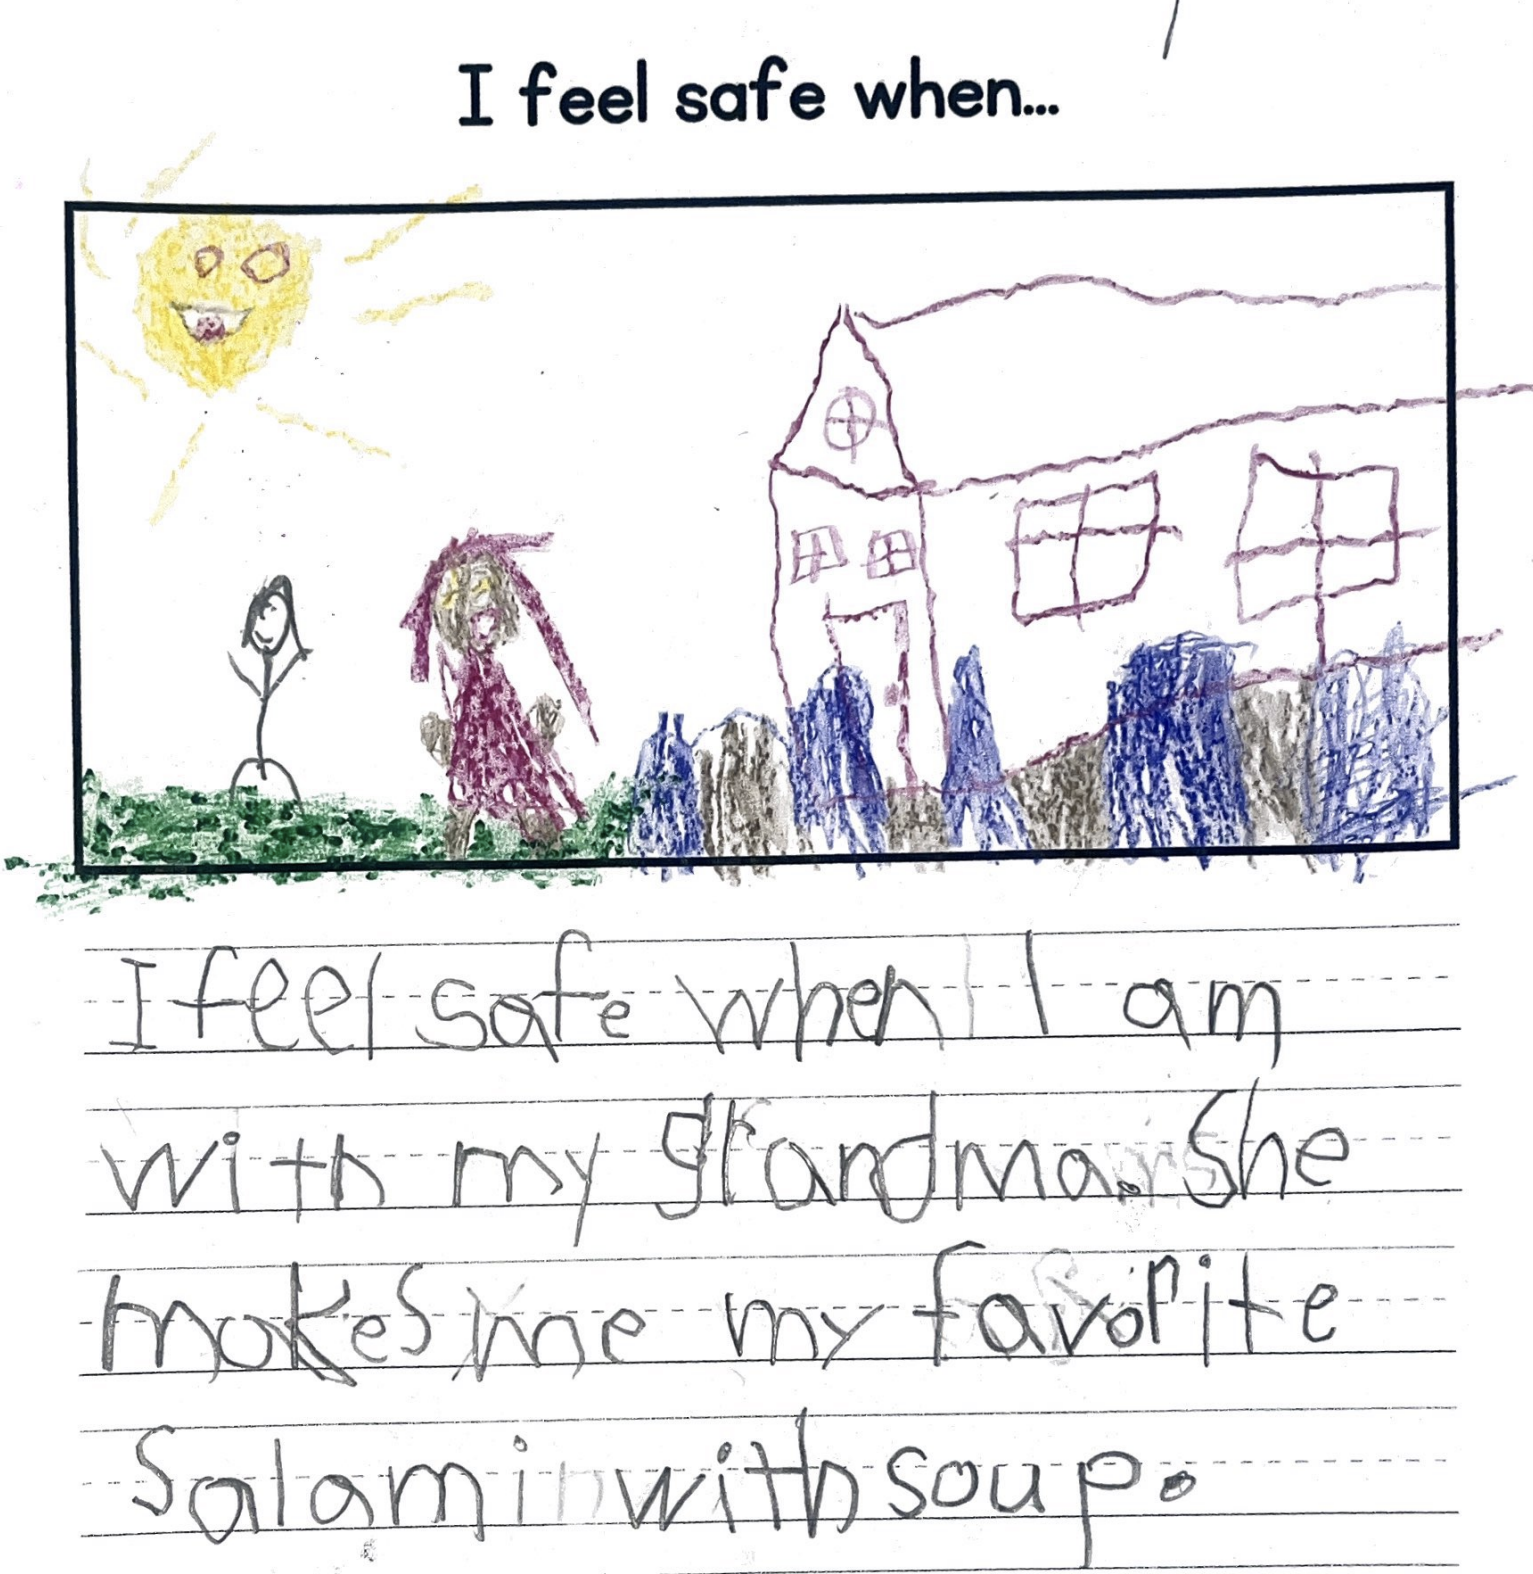 I feel safe when...
I feel safe when I am
with my grandma. She
makes me my favorite
Salami with soup.